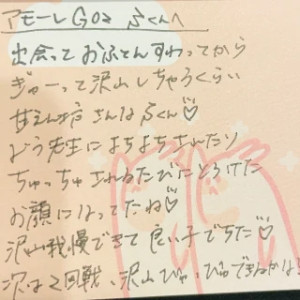 アモーレGOZ ふくんへ
出会っておふとんすわってから
ぎゅーって沢山しちゃうくらい
甘えん坊さんなふくん♡
よう先生によちよちされたり
ちゅっちゅされるたびにとろけた
お顔になってたね♡
沢山我慢できて良い子でちた♡
次は2回戦、沢山ぴゅっぴゅできるかな